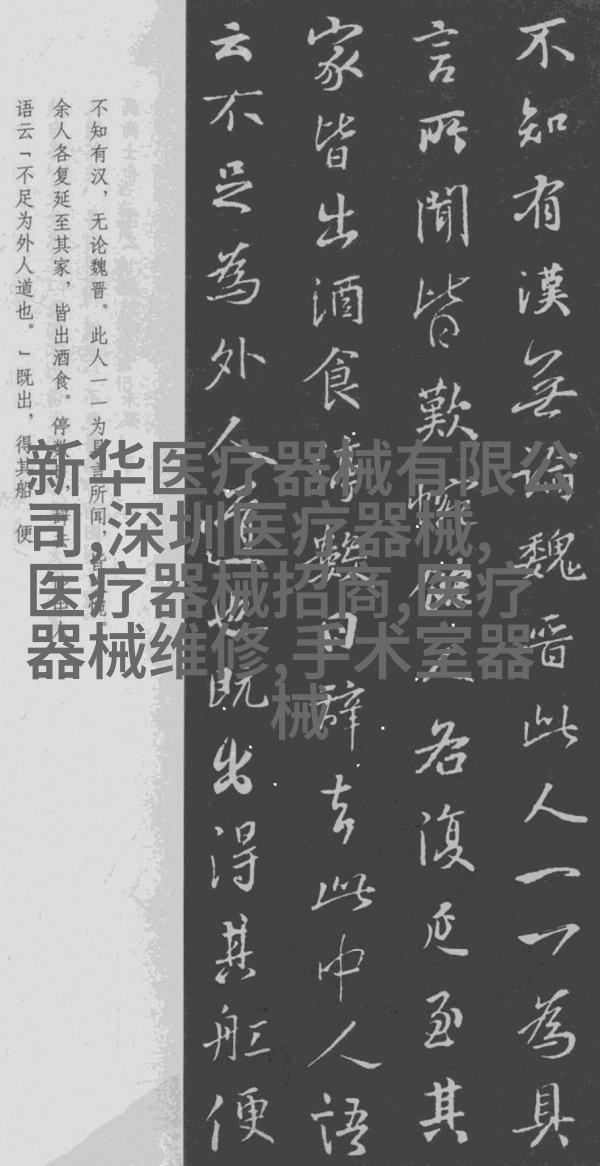 不知有漢無論魏晋此人一一為具
言所聞皆歎惋餘人各復延至其
家皆出酒食停數日辭去此中人語
云不足為外人道也既出得其舡便
不知有汉，无论魏晋。此人一一为具言所闻，皆
余人各复延至其家，皆出酒食。停数
语云「不足为外人道也。」既出，得其船，便
新华医疗器械有限公
司,深圳医疗器械,
医疗器械招商,医疗
器械维修,手术室器
械